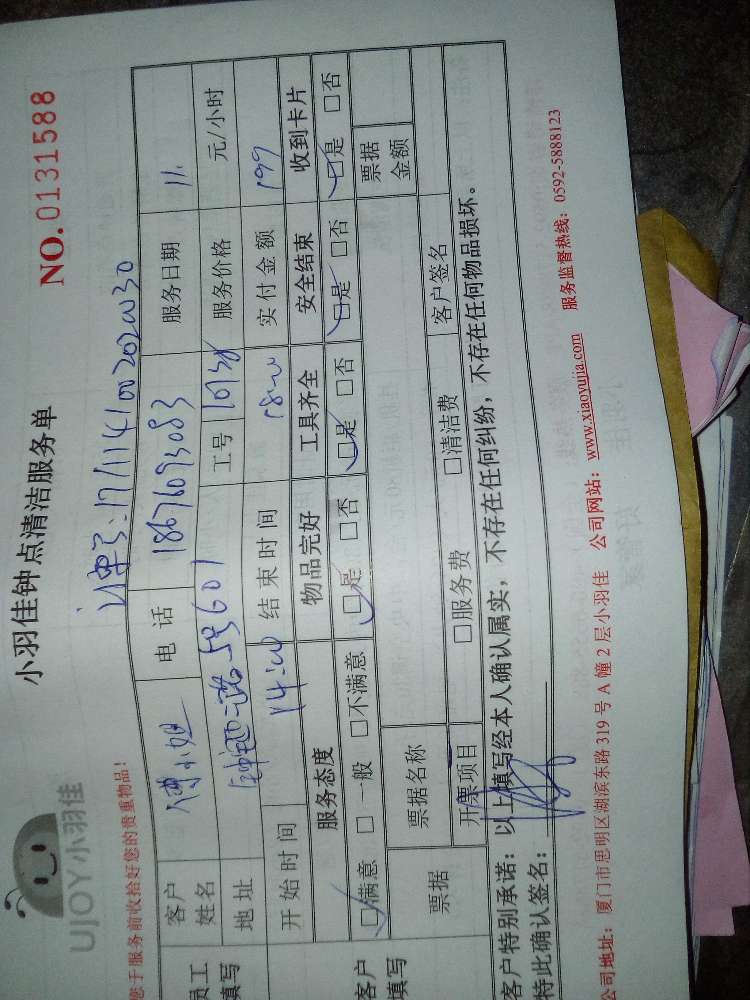 UJOY小羽佳
小羽佳钟点清洁服务单
NO.0131588
您于服务前收拾好您的贵重物品!
订单号:17111410020200030
员工填写
客户姓名 傅小姐 电话 18676093083 服务日期 11.
地址 工号 服务价格 元/小时
开始时间 14:00 结束时间 18:00 实付金额 199
客户填写
服务态度 物品完好 工具齐全 安全结束 收到卡片
☑满意 □一般 □不满意 ☑是 □否 ☑是 □否 ☑是 □否 ☑是 □否
票据 票据名称 票据金额
开票项目 □服务费 □清洁费 客户签名
客户特别承诺:以上填写经本人确认属实,不存在任何纠纷,不存在任何物品损坏。
特此确认签名:
公司地址:厦门市思明区湖滨东路319号A幢2层小羽佳 公司网站:www.xiaoyujia.com 服务监督热线:0592-5888123